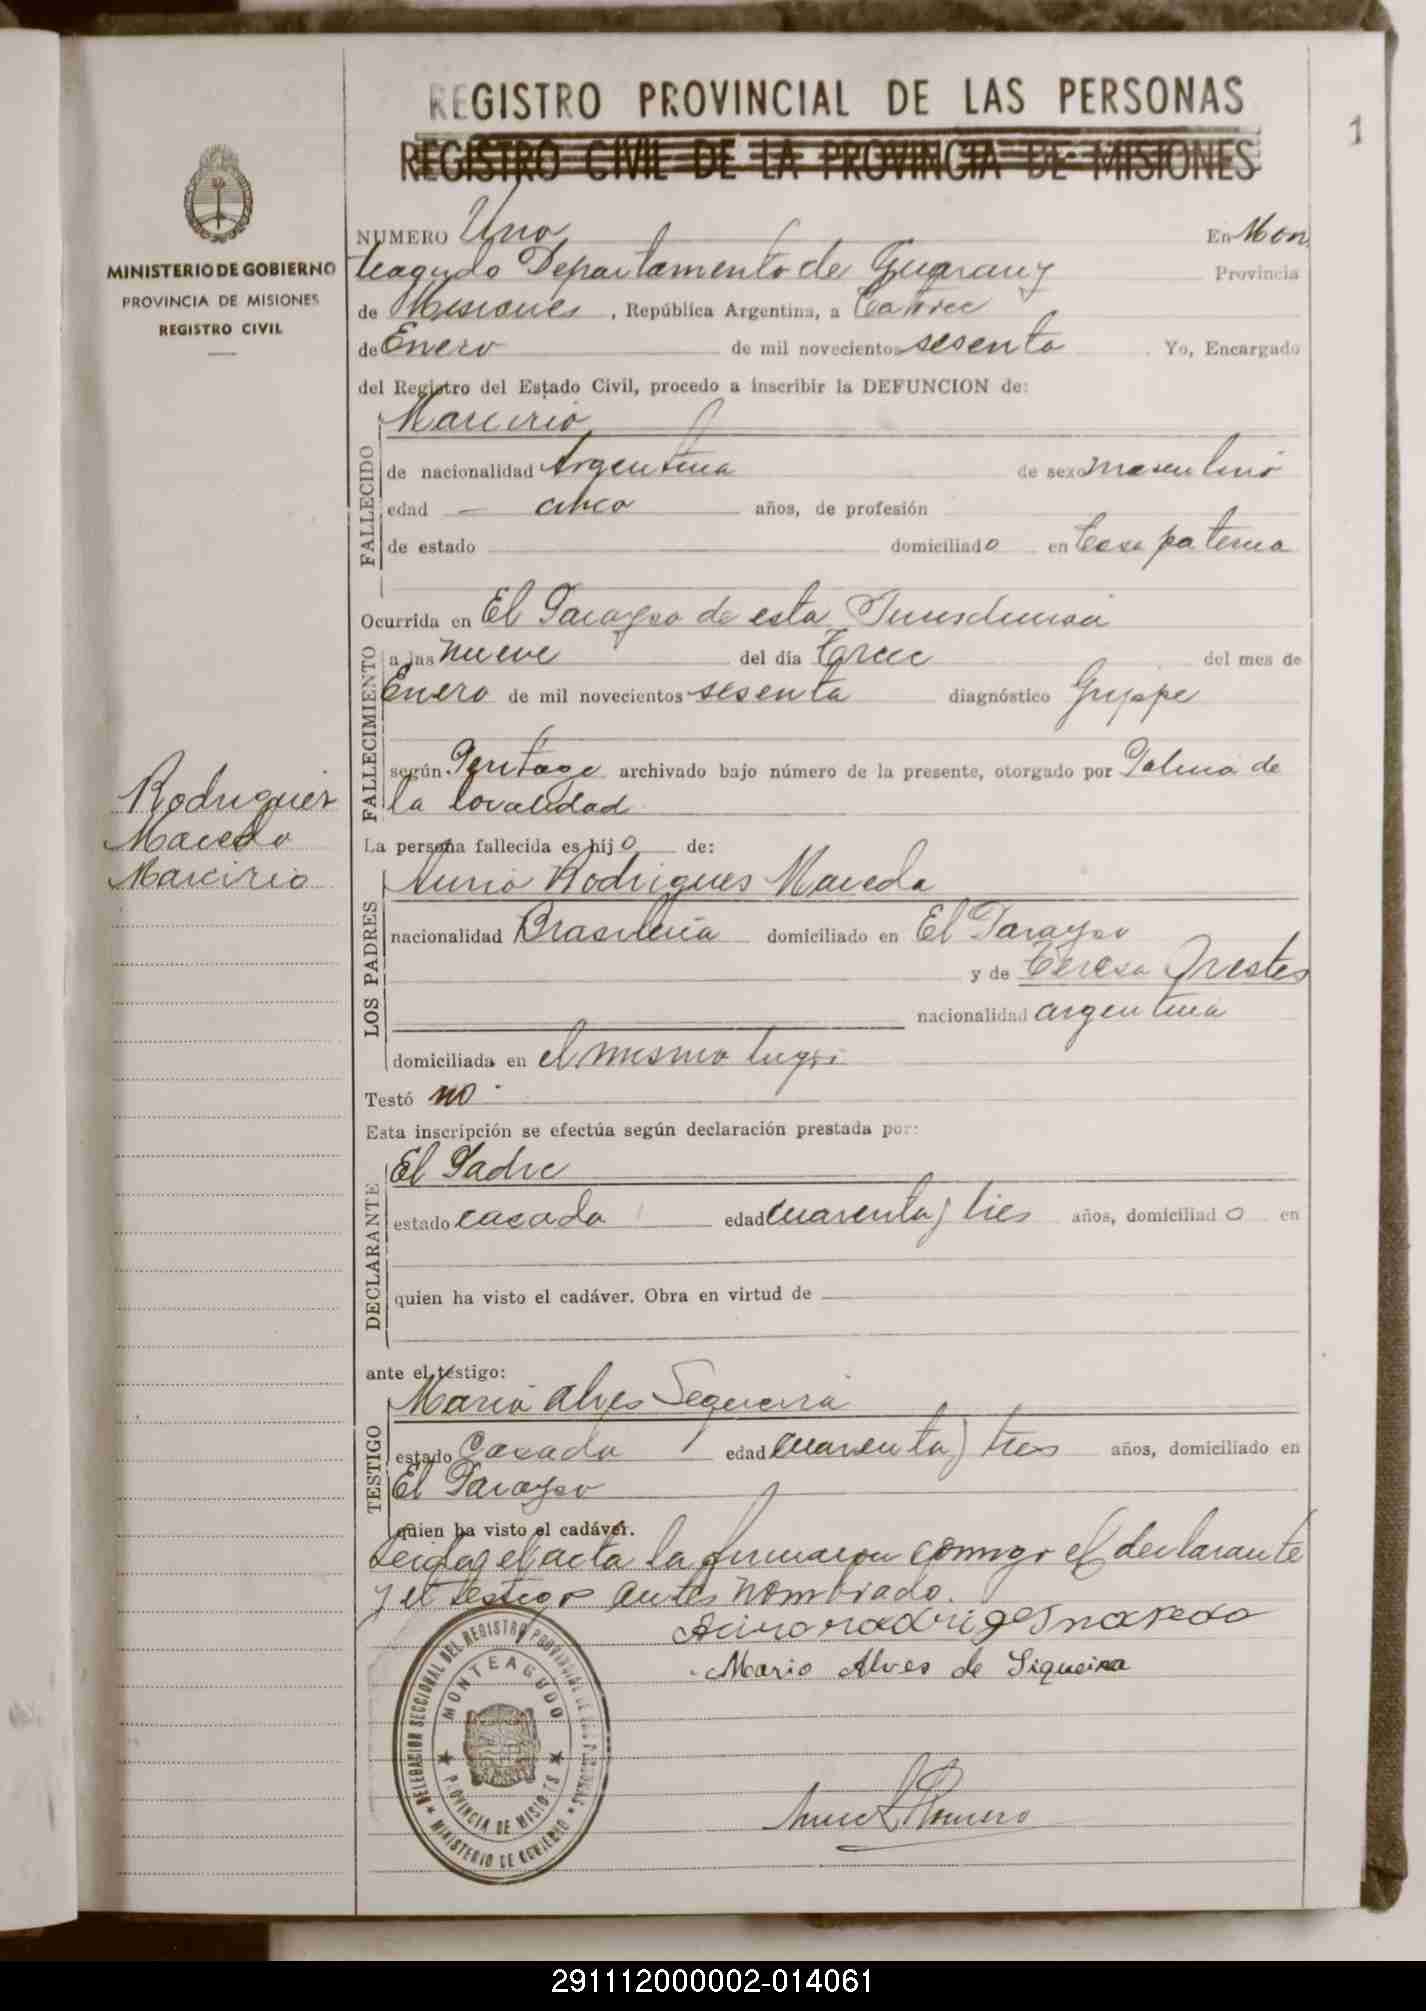 1
REGISTRO PROVINCIAL DE LAS PERSONAS
REGISTRO CIVIL DE LA PROVINCIA DE MISIONES
MINISTERIO DE GOBIERNO
PROVINCIA DE MISIONES
REGISTRO CIVIL
NUMERO Uno En Mon
teagudo Departamento de Guarany Provincia
de Misiones, República Argentina, a Catorce
de Enero de mil novecientos sesenta. Yo, Encargado
del Registro del Estado Civil, procedo a inscribir la DEFUNCION de:
FALLECIDO
Marcirio
de nacionalidad Argentina de sexo masculino
edad — cinco años, de profesión
de estado domiciliado en Casa paterna
FALLECIMIENTO
Ocurrida en El Parayso de esta
a las nueve del día Trece del mes de
Enero de mil novecientos sesenta diagnóstico Gryppe
según Peritage archivado bajo número de la presente, otorgado por de
la localidad
Rodriguez
Macedo
Marcirio
La persona fallecida es hijo de:
LOS PADRES
Rodrigues Maceda
nacionalidad Brasileña domiciliado en El Parayso
y de Teresa Prestes
nacionalidad argentina
domiciliada en el mismo lugar
Testó no
Esta inscripción se efectúa según declaración prestada por:
DECLARANTE
El Padre
estado casado edad cuarenta y tres años, domiciliado en
quien ha visto el cadáver. Obra en virtud de
ante el testigo:
TESTIGO
Mario Alves Segueira
estado Casado edad cuarenta y tres años, domiciliado en
El Parayso
quien ha visto el cadáver.
Leida el acta la firmaron conmigo el declarante
y el testigo antes nombrado.
Mario Alves de Siqueira
Romero
DELEGACION SECCIONAL DEL REGISTRO PROVINCIAL DE LAS PERSONAS
MONTEAGUDO
PROVINCIA DE MISIONES
MINISTERIO DE GOBIERNO
291112000002-014061